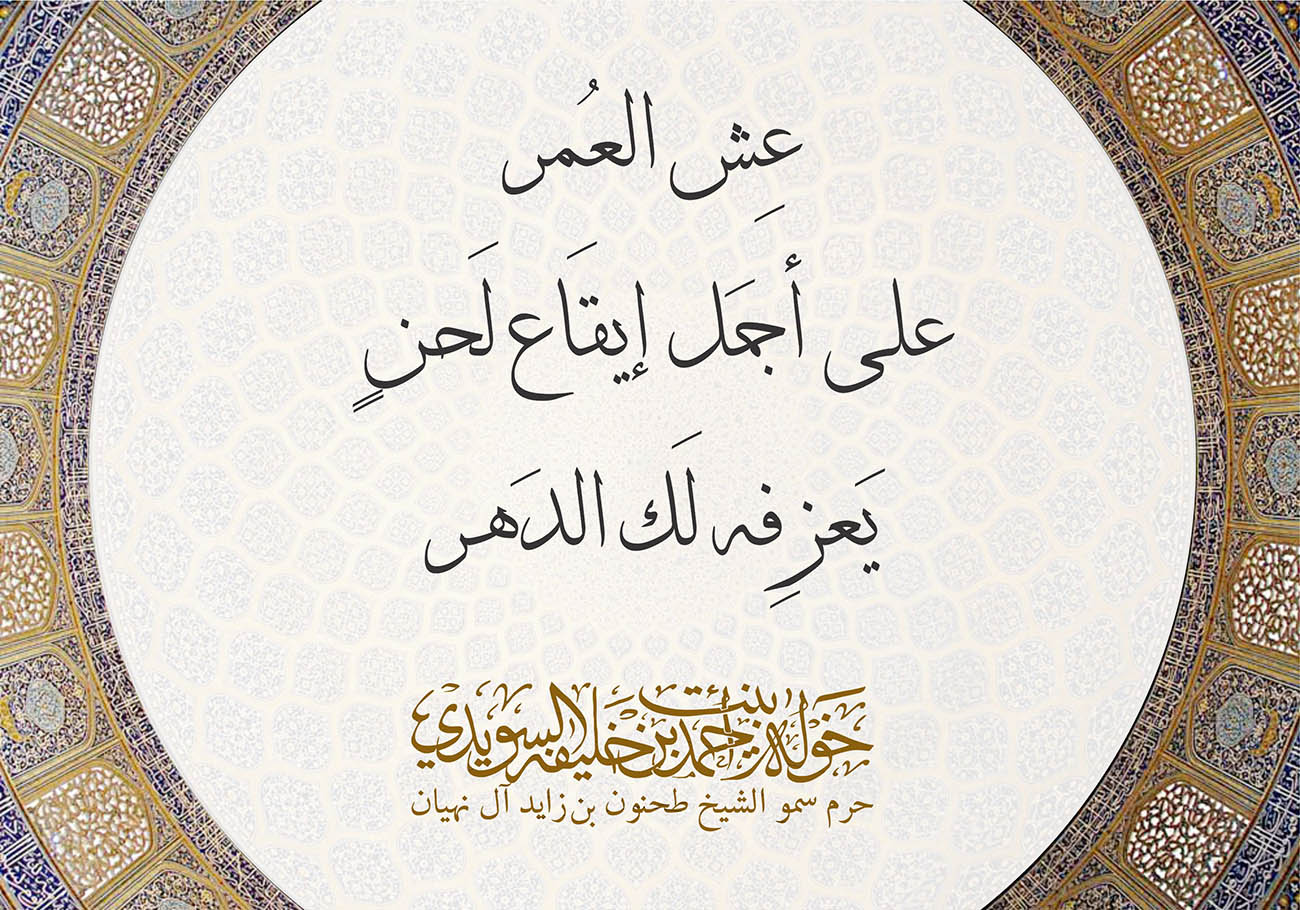 عِش العُمر
على أَجمَل إيقَاع لَحنٍ
يَعزِفه لَك الدَهر
خوله بنت احمد بن خليفه السويدي
حرم سمو الشيخ طحنون بن زايد آل نهيان